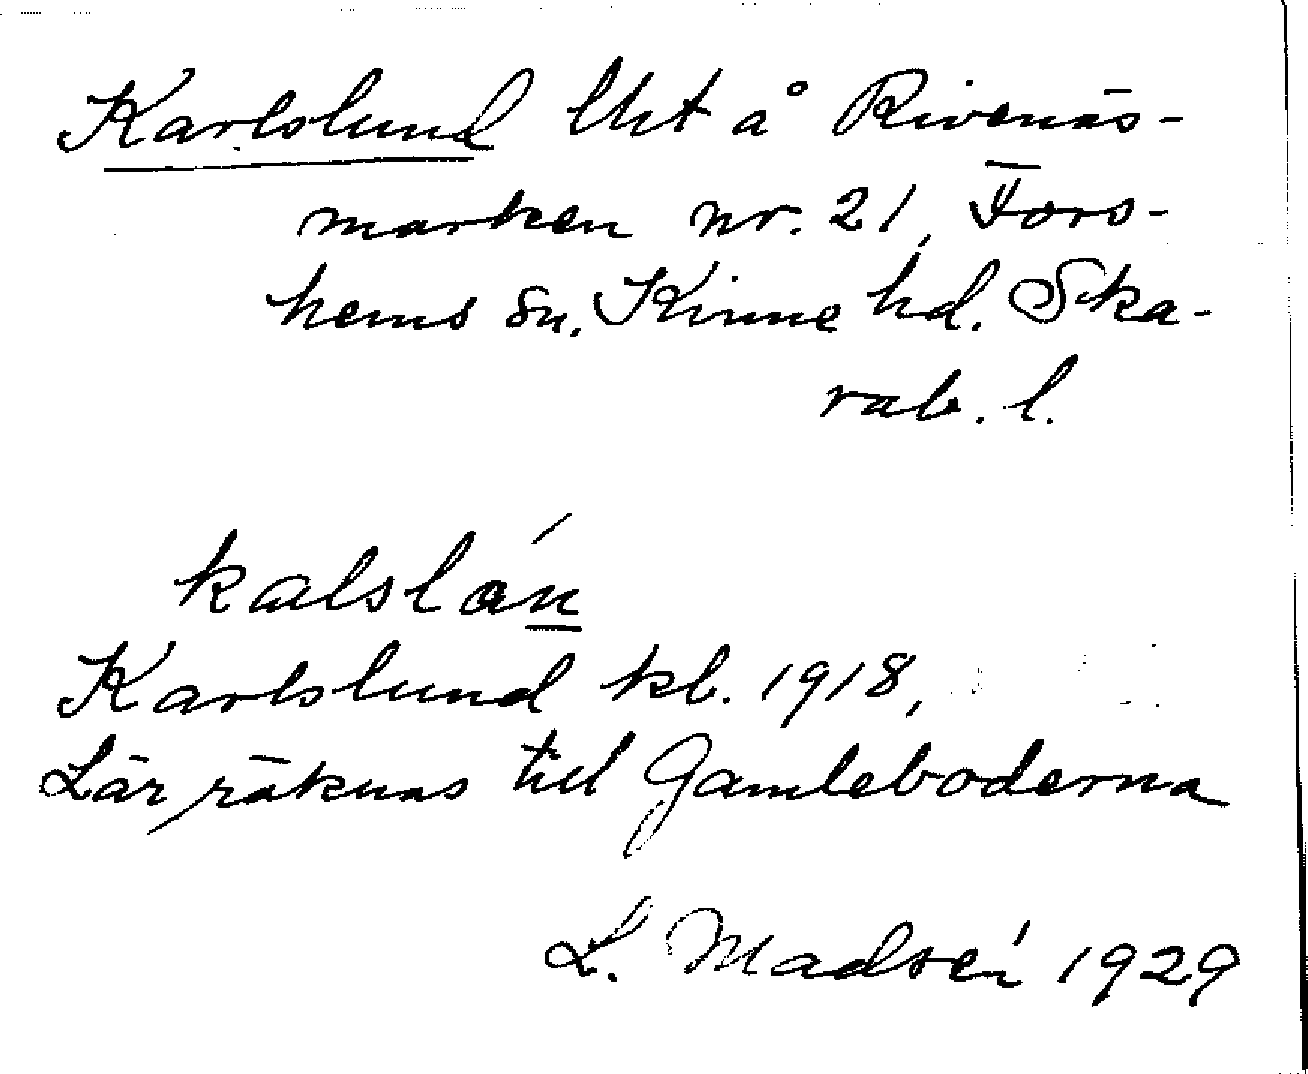 Karlslund lht å Rivenäs-
marken nr. 21, Fors-
hems sn. Kinne hd. Ska-
rab. l.
kalslán
Karlslund kb. 1918,
Lär räknas till Gamleboderna
L. Madsén 1929